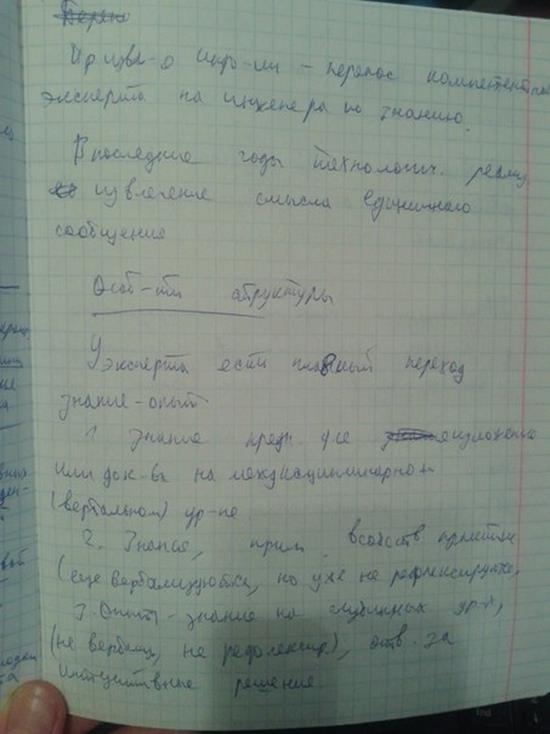 При извл-о инф-ии – перенос компетентнос
эксперта на инженера по знанию.
В последние годы технологич. реализ.
извлечение смысла единичного
сообщения
Особ-ти структуры
У эксперта есть плавный переход
знание-опыт
1 знание предн. для изложения
или док-ва на междисциплинарном
(вербальном) ур-не
2. Знания, прим. в собств практике
(еще вербализуются, но уже не рефлексируются,
3. Опыт – знание на глубинных ур-х,
(не вербализ, не рефлексир.), отв. за
интуитивные решения